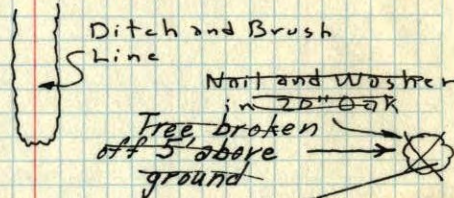 Ditch and Brush
Line
Nail and Washer
in 20" Oak
Tree broken
off 5' above
ground